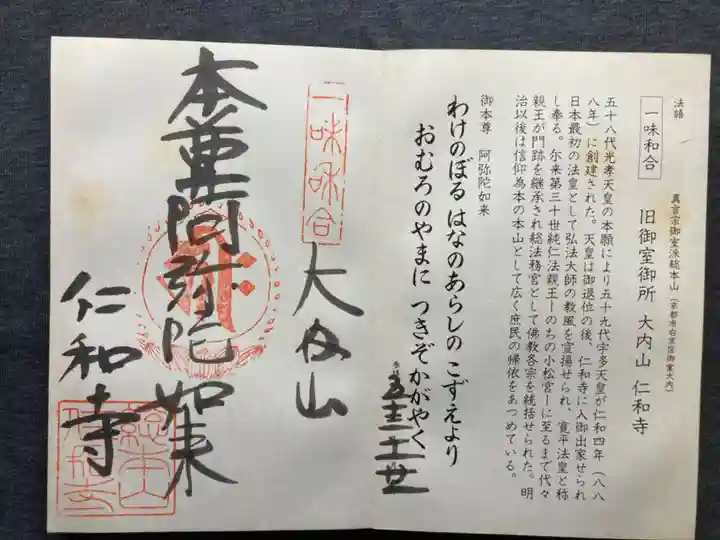 法語
一味和合
真言宗御室派総本山（京都市右京区御室大内）
旧御室御所 大内山 仁和寺
五十八代光孝天皇の本願により五十九代宇多天皇が仁和四年（八八
八年）に創建された。天皇は御退位の後、仁和寺に入御出家せられ
日本最初の法皇として弘法大師の教風を宣揚せられ、寛平法皇と称
し奉る。尓来第三十世純仁法親王ーのちの小松宮ーに至るまで代々
親王が門跡を継承され総法務宮として佛教各宗を統括せられた。明
治以後は信仰為本の本山として広く庶民の帰依をあつめている。
御本尊 阿弥陀如来
わけのぼる はなのあらしの こずえより
おむろのやまに つきぞかがやく
一味和合
大内山
本尊阿弥陀如来
仁和寺